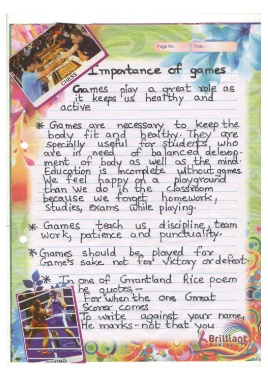 Page No. Date:
CHESS
Importance of games
Games play a great role as
it keeps us healthy and
active
* Games are necessary to keep the
body fit and healthy. They are
specially useful for students, who
are in need of balanced develop-
ment of body as well as the mind.
Education is incomplete without games
We feel happy on a playground
than we do in the classroom
because we forget homework,
studies, exams while playing.
* Games teach us, discipline, team
work, patience and punctuality.
* Games should be played for
Game's sake not for victory or defeat.
* In one of Grantland Rice poem
he quotes—
For when the one Great
Scorer comes
To write against your name,
He marks - not that you
BOXING
Brilliant